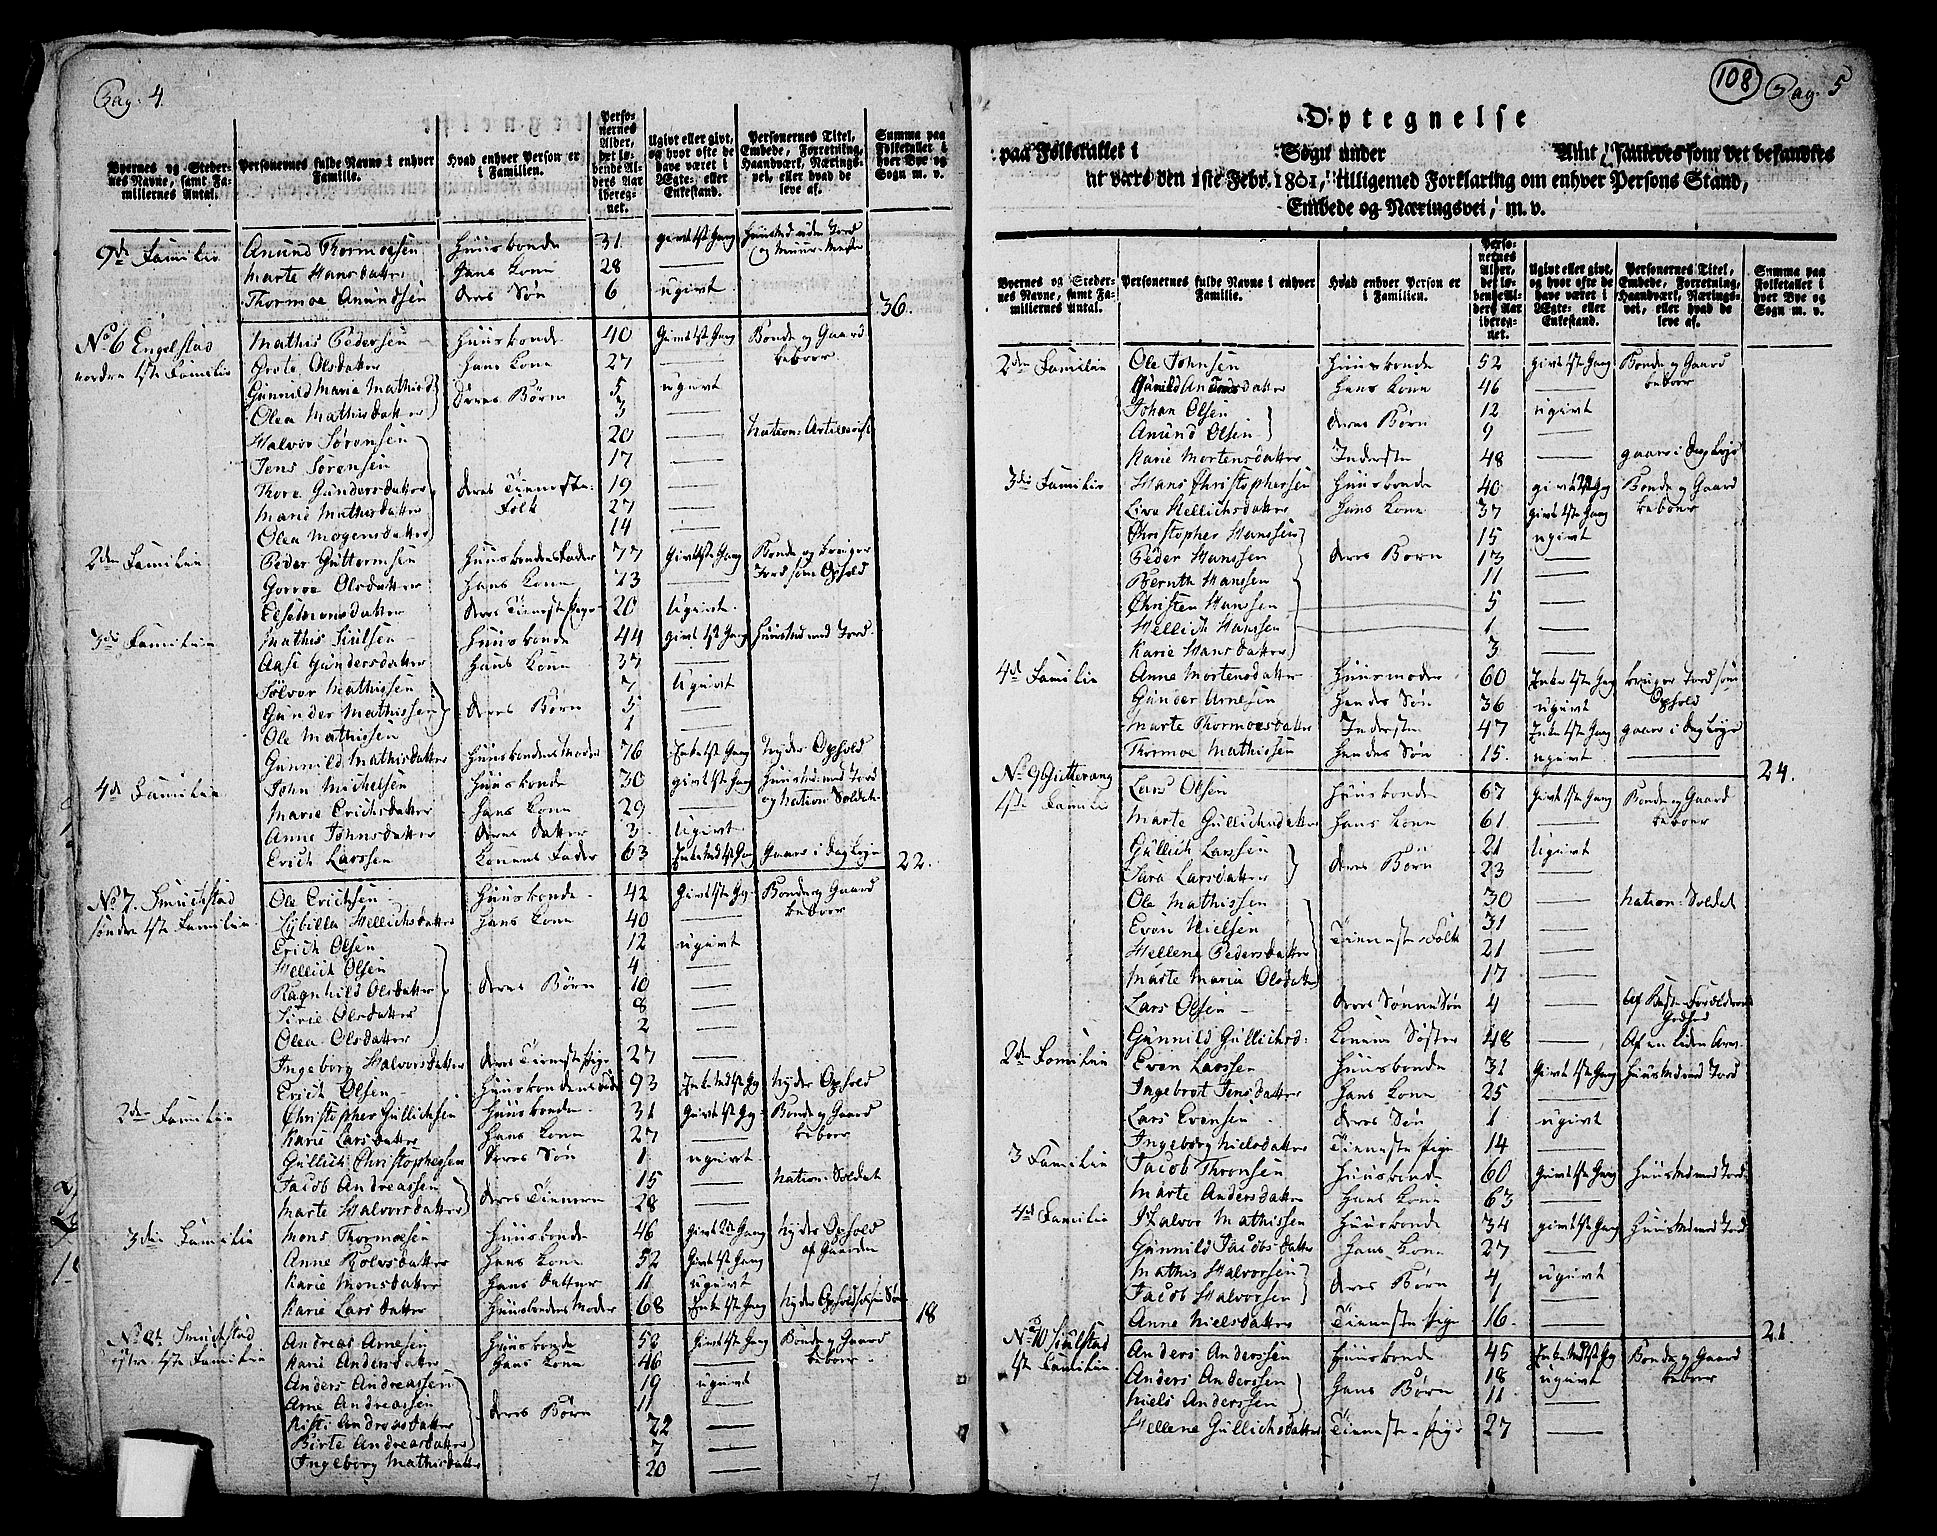 Pag. 4.
Byernes og Stedernes Navne, samt Familiernes Antal.
Personernes fulde Navne i enhver Familie.
Hvad enhver Person er i Familien.
Personernes Alder, det løbende Alders Aar iberegnet.
Ugivt eller givt, og hvor ofte de have været i Ægte- eller Enkestand.
Personernes Titel, Embede, Forretning, Haandværk, Næringsvei, eller hvad de leve af.
Summa paa Folketallet i hver Bye og Sogn m. v.
9de Familie Anund Thormoesen Huusbonde 31 givt 1ste Gang Huusmd uden Jord og Muur-Mester
Marte Hansdatter Hans Kone 28 —
Thormoe Anundsen deres Søn 6 ugivt
36.
No 6 Engelstad Mathis Pedersen Huusbonde 40 Givt 1ste Gang Bonde og Gaard beboer
nordre 1ste Familie Grete Olsdatter Hans Kone 27 —
Gunnild Maria Mathisd deres Børn 5 ugivt
Olea Mathisdatter 3 —
Halvor Sørensen 20 — Nation: Artillerist
Jens Sørensen 17 —
Thore Gundersdatter deres Tienneste- 19 —
Marie Mathisdatter Folk 27 —
Olea Mogensdatter 14 —
2den Familie Peder Guttormsen Huusbondens Fader 77 Givt 1ste Gang Bonde og bruger
Gorroe Olsdatter Hans Kone 73 — Jord som Ophold
Else Monsdatter deres Tienneste Pige 20 Ugivt.
3die Familie Mathis Siulsen Huusbonde 44 givt 1ste Gang Huusmd med Jord.
Aase Gundersdatter Hans Kone 37 —
Sølvor Mathissen 7 Ugivt
Gunder Mathissen deres Børn 5 —
Ole Mathissen 1 —
Gunnild Mathisdatter Huusbondens Moder 76 Enke 1ste Gang Nyder Ophold
4de Familie John Michelsen Huusbonde 30 givt 1ste Gang Huusmd: med Jord
Marie Erichsdatter Hans Kone 29 — og Nation: Soldat
Anne Johnsdatter deres datter 3 Ugivt
Erich Larssen Konens Fader 63 Enkemd 1ste Gang Gaaer i Dagleje
22.
No 7. Smuchstad Ole Erichsen Huusbonde 42 Givt 1ste Gg Bonde og Gaard
søndre 1ste Familie Sybilla Hellichsdatter Hans Kone 40 — beboer
Erich Olsen 12 ugivt
Hellich Olsen 4 —
Ragnhild Olsdatter deres Børn 10 —
Sirie Olsdatter 8 —
Olea Olsdatter 2 —
Ingeborg Halvorsdatter deres Tienneste Pige 27 —
Erich Olsen Huusbondens Fader 93 Enkemd 1ste Gg Nyder Ophold
2den Familie Christopher Gullichsen Huusbonde 31 Givt 1ste Gg Bonde og Gaard
Karie Larsdatter Hans Kone 27 — beboer
Gullich Christophersen deres Søn 1 ugivt
Jacob Andreassen 15 — Nation: Soldat
Marte Halvorsdatter deres Tiennere 28 —
3die Familie Mons Thormoesen Huusbonde 46 Givt 2d Gang Nyder Ophold
Anne Rolvsdatter Hans Kone 52 Givt 1ste Gang af Gaarden
Karie Monsdatter Hans datter 11 ugivt
Karie Larsdatter Huusbondens Moder 68 Enke 1ste Gang Nyder Ophold
18
No 8de Smuchstad Andreas Arnesen Huusbonde 53 Givt 1ste Gang Bonde og Gaard
østre 1ste Familie Karie Andersdatter Hans Kone 46 — beboer
Anders Andreassen 19 ugivt
Arne Andreassen 11 —
Kisti Andreasdatter deres Børn 22 —
Birte Andreasdatter 7 —
Ingeborg Mathisdatter 20 —
108
Pag. 5
Optegnelse
paa Folketallet i Sogn under Amt, saaledes som det befandtes
at være den 1ste Febr. 1801, tilligemed Forklaring om enhver Persons Stand,
Embede og Næringsvei, m. v.
Byernes og Stedernes Navne, samt Familiernes Antal.
Personernes fulde Navne i enhver Familie.
Hvad enhver Person er i Familien.
Personernes Alder, det løbende Alders Aar iberegnet.
Ugivt eller givt, og hvor ofte de have været i Ægte- eller Enkestand.
Personernes Titel, Embede, Forretning, Haandværk, Næringsvei, eller hvad de leve af.
Summa paa Folketallet i hver Bye og Sogn m. v.
2den Familie Ole Johnsen Huusbonde 52 givt 1ste Gang Bonde og Gaard
Hans Kone 46 — beboer
Johan Olsen deres Børn 12 ugivt
Anund Olsen 9 —
Karie Mortensdatter Inderste 48 — gaaer i Dagleje
3die Familie Hans Christophersen Huusbonde 40 givt 2d Gg Bonde og Gaard
Liva Hellichsdatter Hans Kone 37 Givt 1ste Gang beboer
Christopher Hanssen 15 ugivt
Peder Hanssen deres Børn 13 —
Bernth Hanssen 11 —
Christen Hanssen 5 —
Hellich Hanssen 1 —
Karie Hansdatter 3 —
4de Familie Anne Mortensdatter Huusmoder 60 Enke 1ste Gang bruger Jord som
Gunder Arnesen Hendes Søn 36 ugivt Ophold
Marte Thormoesdatter Inderste 47 Enke 1ste Gang gaaer i Dagleje
Thormoe Mathissen Hendes Søn 15. ugivt —
24.
No 9 Gutterang Lars Olsen Huusbonde 67 Givt 1ste Gang Bonde og Gaard
1ste Familie Marte Gullichsdatter Hans Kone 61 — beboer
Gullich Larssen deres Børn 21 Ugivt
Sara Larsdatter 23 —
Ole Mathissen 30 — Nation: Soldat
Even Nielsen Tienneste Folk 31 —
Hellene Pedersdatter 21 —
Marte Maria Olsdatter 17 —
Lars Olsen deres Sønne Søn 4 — Af Beste-Forældrenes Godhed
Gunnild Gullichsd: Konens Søster 48 — Af en liden Arv
2den Familie Even Larssen Huusbonde 31 Givt 1ste Gang Huusmd med Jord
Ingebrot Jensdatter Hans Kone 25 —
Lars Evensen deres Søn 1 ugivt
Ingeborg Nielsdatter Tienneste Pige 14 —
3 Familie Jacob Thronsen Huusbonde 60 Givt 1ste Gang Huusmd med Jord
Marte Andersdatter Hans Kone 63 —
4de Familie Halvor Mathissen Huusbonde 34 givt 1ste Gang Huusmd med Jord
Gunnild Jacobsdatter Hans Kone 27 —
Mathis Halvorsen deres Børn 4 ugivt
Jacob Halvorsen 1 —
Anne Nielsdatter Tienneste Pige 16. —
21
No 10 Siulstad Anders Anderssen Huusbonde 45 Enkemd 1ste Gg Bonde og Gaard
1ste Familie Anders Anderssen Hans Børn 18 ugivt beboer
Niels Anderssen 11 —
Hellene Gullichsdatter Tienneste Pige 27 —